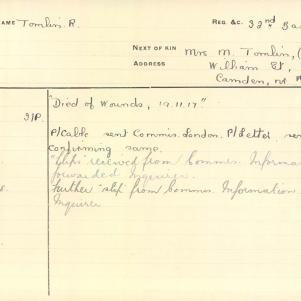 NAME Tomlin. R.
REG. &C. 32nd Ba
NEXT OF KIN Mrs M. Tomlin, (
ADDRESS William St,
Camden, nr
"Died of Wounds, 19.11.17"
P/Cable sent Commis. London. P/Letter sen
confirming same.
"slip" received from Commis. Informa
forwarded inquirer.
Further "slip" from Commis. Information
Inquirer